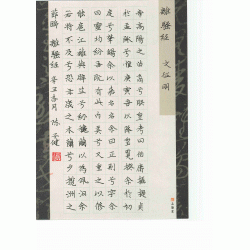 離騷經 文征明
帝高陽之苗裔兮朕皇考曰伯庸攝提貞
于孟陬兮惟庚寅吾以降皇覽揆余于初
度兮肇錫余以嘉名名余曰正則兮字余
曰靈均紛吾既有此內美兮又重之以脩
能扈江離與辟芷兮紉秋蘭以為佩汨余
若將不及兮恐年歲之木蘭兮夕攬洲之
節臨 離騷經 辛丑春月 陳 健